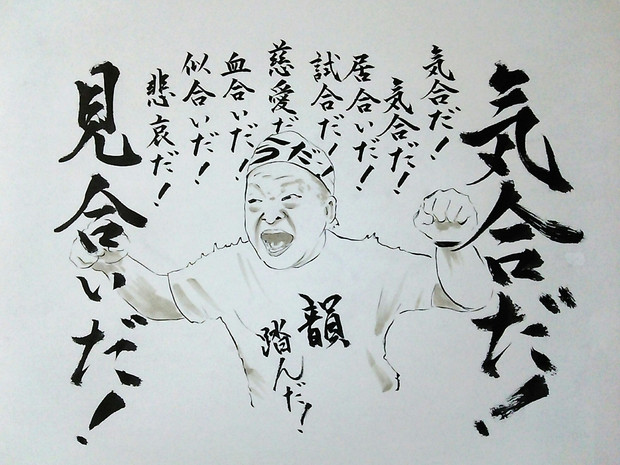 気合だ!
気合だ!
気合だ!
居合いだ!
試合だ!
慈愛だ
血合いだ!
似合いだ!
悲哀だ!
見合いだ!
韻
踏んだ!